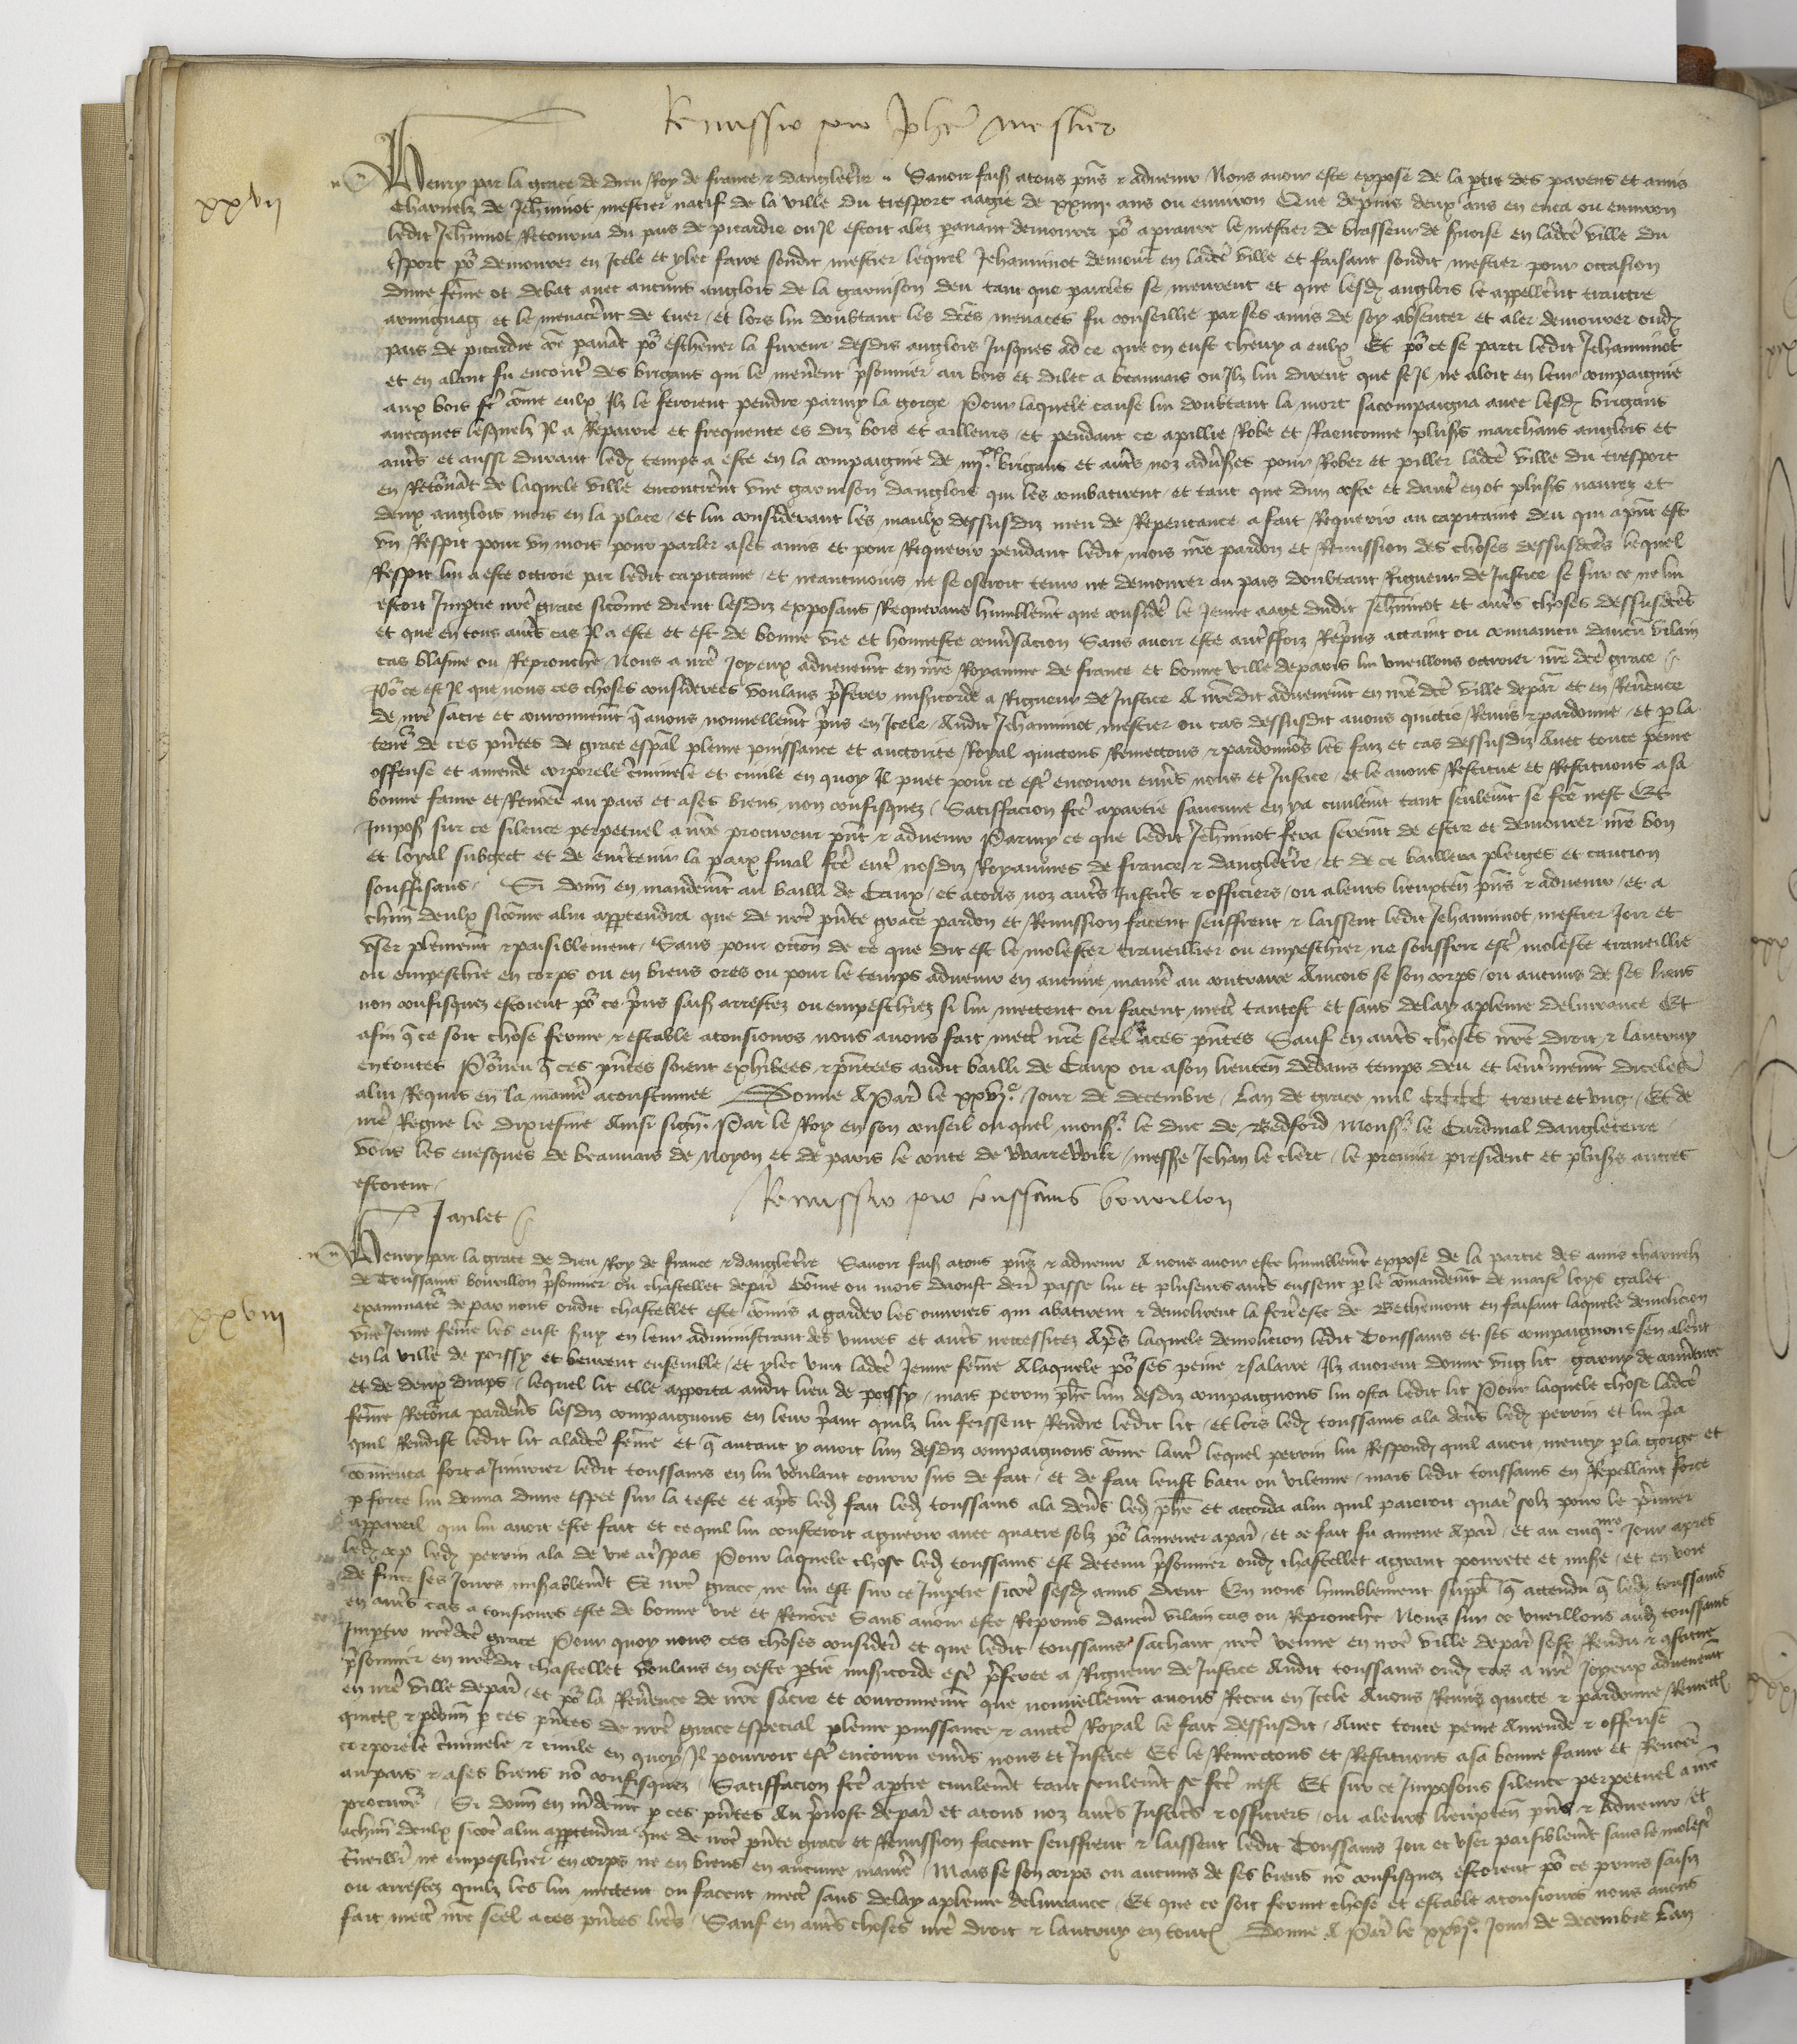 Remissio pro Joh mestier
xxvii
Henry par la grace de dieu Roy de france et dangleterre Savoir faiz a tous pns et advenir Nous avoir este expose de la ptie des parens et amis
charnelz de Jehannot mestier natif de la ville du tresport aagie de xxiiii ans ou environ Que depuis deux ans en enca ou environ
ledit Jehannot Retourna du pais de picardie ou Il estoit alez paravant demourer pour aprandre le mestier de brasseur de en ladce ville du
tport por demourer en Icele et ylec faire sondit mestier lequel Jehannot demourt en ladce ville et faisant sondit mestier pour occasion
dune feme ot debat avec aucuns anglois de la garnison deu tant que paroles se meurent et que lesd anglois le appellerent traictre
armignag et le menacerent de tuer et lors lui doubtant les dces menaces fu conseillie par ses amis de soy absenter et aler demourer oud
pais de picardie coe pavat por eschever la fureur desdis anglois Jusques ad ce que on eust chevy a eulx Et por ce se parti ledit Jehannot
et en alant fu encontre des brigans qui le menerent psonnier au bois et dilec a beauvais ou Ilz lui dirent que se Il ne aloit en leur compaignie
aux bois fe come eulx Ilz le feroient pendre parmy la gorge Pour laquele cause lui doubtant la mort sacompaigna avec lesd brigans
avecques lesquelz Il a Repairie et frequente es diz bois et ailleurs et pendant ce a pillie Robe et Raenconne plusrs marchans anglois et
autrs et aussi durant led temps a este en la compaignie de brigans et autrs noz advsres pour Rober et piller ladce ville du tresport
en Retornat de laquele ville encontrerent une garnison danglois qui les combatirent et tant que dun coste et daut en ot plusrs navrez et
deux anglois mors en la place et lui considerant les maulx dessusdiz meu de Repentance a fait Requerir au capitaine deu qui apnt est
un Respit pour un mois pour parler a ses amis et pour Requerir pendant ledit mois nre pardon et Remission des choses dessusdces lequel
Respit lui a este octroie par ledit capitaine et neantmoins ne se oseroit tenir ne demourer au pais doubtant Rigueur de Justice se sur ce ne lui
estoit Imptie nre grace sicome dient lesdiz exposans Requerans humblemt que consider le Jeune aage dudit Jehannot et autrs choses dessusdces
et que en tous autrs cas Il a este et est de bonne vie et honneste convsacion Sans avoir este autsfoiz Repris attaint ou convaincu daucu vilain
cas blasme ou Reprouche Nous a nre Joyeux advenemt en nre Royaume de france et bonne ville de paris lui vueillons octroier nre dce grace
Por ce est Il que nous ces choses considerees voulans pferer misicorde a Rigueur de Justice A nredit advenemt en nre dce ville de par et en Revence
de nre sacre et couronnemt q avons nouvellemt pris en Icele Audit Jehannot mestier ou cas dessusdit avons quictie Remis et pardonne et p la
tenr de ces pntes de grace espal pleine puissance et auctorite Royal quictons Remectons et pardonnos les faiz et cas dessusdiz Avec toute peine
offense et amende corporele cminele et civile en quoy Il puet pour ce estre encouru envs nous et Justice et le avons Restitue et Restituons a sa
bonne fame et Renoee au pais et a ses biens non confisquez Satisfacion fce a partie saucune en ya civilemt tant seulemt se fce nest Et
Imposs sur ce silence perpetuel a nre procureur pnt et advenir Parmy ce que ledit Jehannot fera seremt de estre et demourer nre bon
et loyal subgect et de entretenir la paix final fce ent nosdiz Royaumes de france et dangleterre et de ce baillera pleiges et caucion
souffisans Si donn en mandemt au bailli de Caux et a tous noz autrs Justicrs et officiers ou a leurs lieuxten pns et advenir et a
chun deulx sicome a lui appartendra que de nre pnte grace pardon et Remission facent seuffrent et laissent ledit Jehannot mestier Joir et
user plemt et paisiblement Sans pour occon de ce que dit est le molester traveillier ou empeschier ne souffrir estre moleste traveillie
ou empeschie en corps ou en biens ores ou pour le temps advenir en aucune manre au contraire Aincois se son corps ou aucuns de ses biens
non confisquez estoient por ce pris saisiz arrestez ou empeschiez si lui mectent ou facent mect tantost et sans delay a pleine delivrance Et
afin q ce soit chose ferme et estable a tousiours nous avons fait mect nre seel a ces pntes Sauf en autrs choses nre droit et lautruy
en toutes Porveu q ces pntes soient exhibees et pntees audit bailli de Caux ou a son lieuten dedans temps deu et diceles
a lui Requis en la manre acoustumee Donne A Par le xxvje Jour de decembre Lan de grace mil CCCC trente et ung Et de
nre Regne le dixiesme Ainsi sign Par le Roy en son conseil ouquel mons le duc de Bedford Mons le Cardinal dangleterre
vous les evesques de beauvais de Noyon et de paris le conte de Warrewik messe Jehan le clerc le premier president et plusrs autres
estoient
Remissio pro toussains bourillon
Janlet
xxviii
Henry par la grace de dieu Roy de france et dangleterre Savoir faiz a tous pns et advenir A nous avoir este humblemt expose de la partie des amis charnelz
de Toussains bourillon psonnier ou chastellet de par Come ou mois daoust derr passe lui et pluseurs autrs eussent p le comandemt de maist loys galet
examinatr de par nous oudit chastellet este comis a garder les ouvriers qui abatirent et demolirent la forterese de Bethemont en faisant laquele demolicion
une Jeune feme les eust en leur administrant des vivres et autrs neccessitez Aprs laquele demolicion ledit Toussains et ses compaignons sen alerent
en la ville de poissy et beurent ensemble et ylec vint ladce Jeune feme A laquele por ses peine et salaire Ilz avoient donne ung lit garny de
et de deux draps lequel lit elle apporta audit lieu de poissy mais perrin phe lun desdiz compaignons lui osta ledit lit Pour laquele chose ladce
feme Retorna pardevs lesdiz compaignons en leur priant quilz lui feissent Rendre ledit lit et lors led toussains ala devs led perrin et lui pa
quil Rendist ledit lit a ladce feme et q autant y avoit lun desdiz compaignons come laut lequel perrin lui Respond quil avoit menty p la gorge et
comenca fort a Iniurier ledit toussains en lui voulant courir sus de fait et de fait leust batu ou vilenne mais ledit toussains en Repellant force
p force lui donna dune espee sur la teste et aprs led fait led toussains ala devs led phe et accorda a lui quil paieroit quat solz pour le pmier
appareil qui lui avoit este fait et ce quil lui cousteroit a guerir avec quatre solz por lamener a par et ce fait fu amene A par et au cinqme Jour apres
led cop led perrin ala de vie a trespas Pour laquele chose led toussains est detenu psonnier oud chastellet a grant povrete et misere et en voie
de finer ses Jours misablemt Se nre grace ne lui est sur ce Imptie sicoe sesd amis dient En nous humblement suppl q attendu q led toussains
en autrs cas a tousiours este de bonne vie et Renoee Sans avoir este Reprins daucu vilain cas ou Reprouche Nous sur ce vueillons aud toussains
Imptir nre dce grace Pour quoy nous ces choses consider et que ledit toussains sachant nre venue en nre ville de par sest Rendu et
psonnier en nredit chastellet Voulans en ceste ptie misicorde estre pferee a Rigueur de Justice Audit toussains oud cas a nre Joyeux advenemt
en nre ville de par et por la Revence de nre sacre et couronnemt que nouvellemt avons Receu en Icele Avons Remis quicte et pardonne Remect
quict et pdonn p ces pntes de nre grace especial pleine puissance et aucte Royal le fait dessusdit Avec toute peine Amende et offense
corporele cminele et civile en quoy Il pourroit estre encouru envs nous et Justice Et le Remectons et Restituons a sa bonne fame et Renoee
au pais et a ses biens no confisquez Satisfacion fce a ptie civilemt tant seulemt se fce nest Et sur ce Imposons silence perpetuel a nre
procureur Si donn en mandemt p ces pntes Au pvost de par et a tous noz autrs Justicrs et officiers ou a leurs lieuxten pns et Advenir et
a chun deulx sicoe a lui appartendra que de nre pnte grace et Remission facent seuffrent et laissent ledit Toussains Joir et user paisiblemt sans le molest
traveillr ne empeschier en corps ne en biens en aucune manre Mais se son corps ou aucuns de ses biens no confisquez estoient por ce prins saisiz
ou arrestez quilz les lui mectent ou facent mect sans delay a pleine delivrance Et que ce soit ferme chose et estable a tousiours nous avons
fait mect nre seel a ces pntes lres Sauf en autrs choses nre droit et lautruy en tout Donne A Par le xxvje Jour de decembre Lan